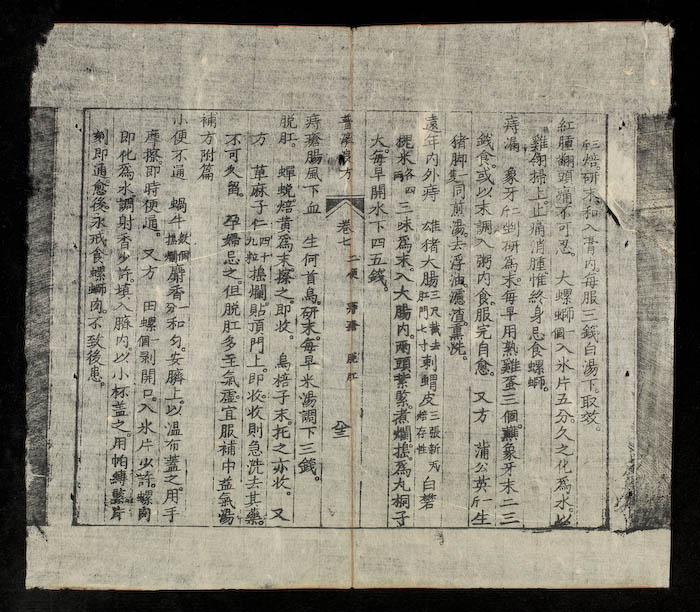 焙研末和入膏內每服三錢白湯下取效
紅腫翻頭痛不可忍 大螺螄一個入氷片五分久之化爲水以
雞翎掃上止痛消腫惟終身忌食螺螄
痔漏 象牙一斤剉研爲末每早用熟雞蛋三個蘸象牙末二三
錢食或以末調入粥內食服完自愈 又方 蒲公英一斤生
猪脚一隻同煎湯去浮油濾渣熏洗
遠年內外痔 雄猪大腸三尺截去肛門七寸刺蝟皮三張新瓦焙存性白礬
糯米各四兩 三味爲末入大腸內兩頭紮緊煮爛搗爲丸桐子
大每早開水下四五錢
良方 卷七 二便 痔瘡 脫肛
痔瘡腸風下血 生何首烏研末每早米湯調下三錢
脫肛 蟬蛻焙黃爲末擦之即收 烏梅子末托之亦收 又
方 草麻子仁四十九粒搗爛貼頂門上即收收則急洗去其藥
不可久留孕婦忌之但脫肛多至氣虛宜服補中益氣湯
補方附篇
小便不通 蝸牛數個搗爛麝香一分和勻安臍上以溫布蓋之用手
摩擦即時便通 又方 田螺一個剝開口入氷片少許螺肉
即化爲水調射香少許填入臍內以小杯蓋之用帕縛緊片
刻即通愈後永戒食螺螄肉不致後患